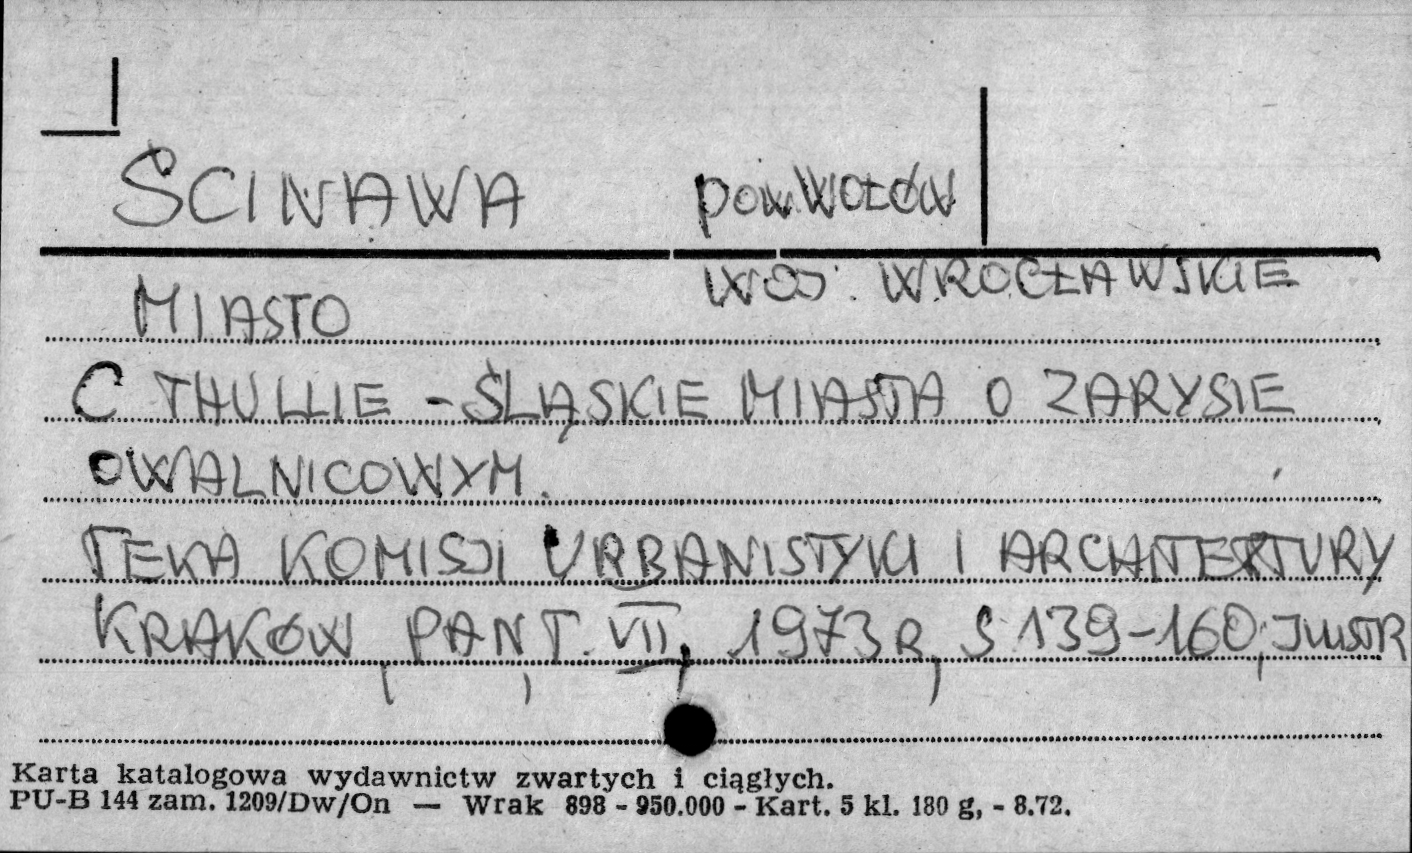 ŚCINAWA pow. WOŁÓW
WOJ. WROCŁAWSKIE
MIASTO
C THULLIE - ŚLĄSKIE MIASTA O ZARYSIE
OWALNICOWYM.
TEKA KOMISJI URBANISTYKI I ARCHITEKTURY
KRAKÓW, PAN, T. VII, 1973 R, S 139-160, ILUSTR
Karta katalogowa wydawnictw zwartych i ciągłych.
PU-B 144 zam. 1209/Dw/On — Wrak 898 - 950.000 - Kart. 5 kl. 180 g, - 8.72.